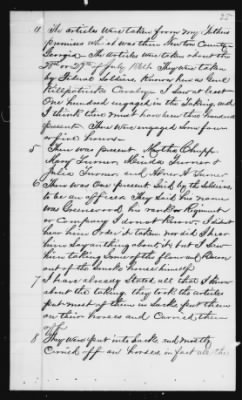 4 The articles were taken from my Fathers
premises which was then Newton County
Georgia. The articles were taken about the
or 27th of July 1864. They were taken
by Federal Soldiers, known as Genl
Kilpatricks Cavalry. I saw at least
One hundred engaged in the taking, and
I think there must have been three hundred
present. They were engaged some four
or five hours
5 There was present Martha Chupp.
Mary Turner, Malinda Turner &
Julia Turner, and Abner A. Turner
6 There was One present Said by the Soldiers
to be an officer. They Said his name
was Greenwood, his rank or Regiment
or Company I do not know, I did not
hear him Order it taken nor did I hear
him Say anything about it, but I Saw
him taking Some of the flour and Bacon
out of the Smoke house himself
7 I have already Stated all that I know
about the taking, they took the articles
put most of them in Sacks put them
on their horses and Carried them
off
8 They were put into Sacks and mostly
Carried off on horses in fact all the